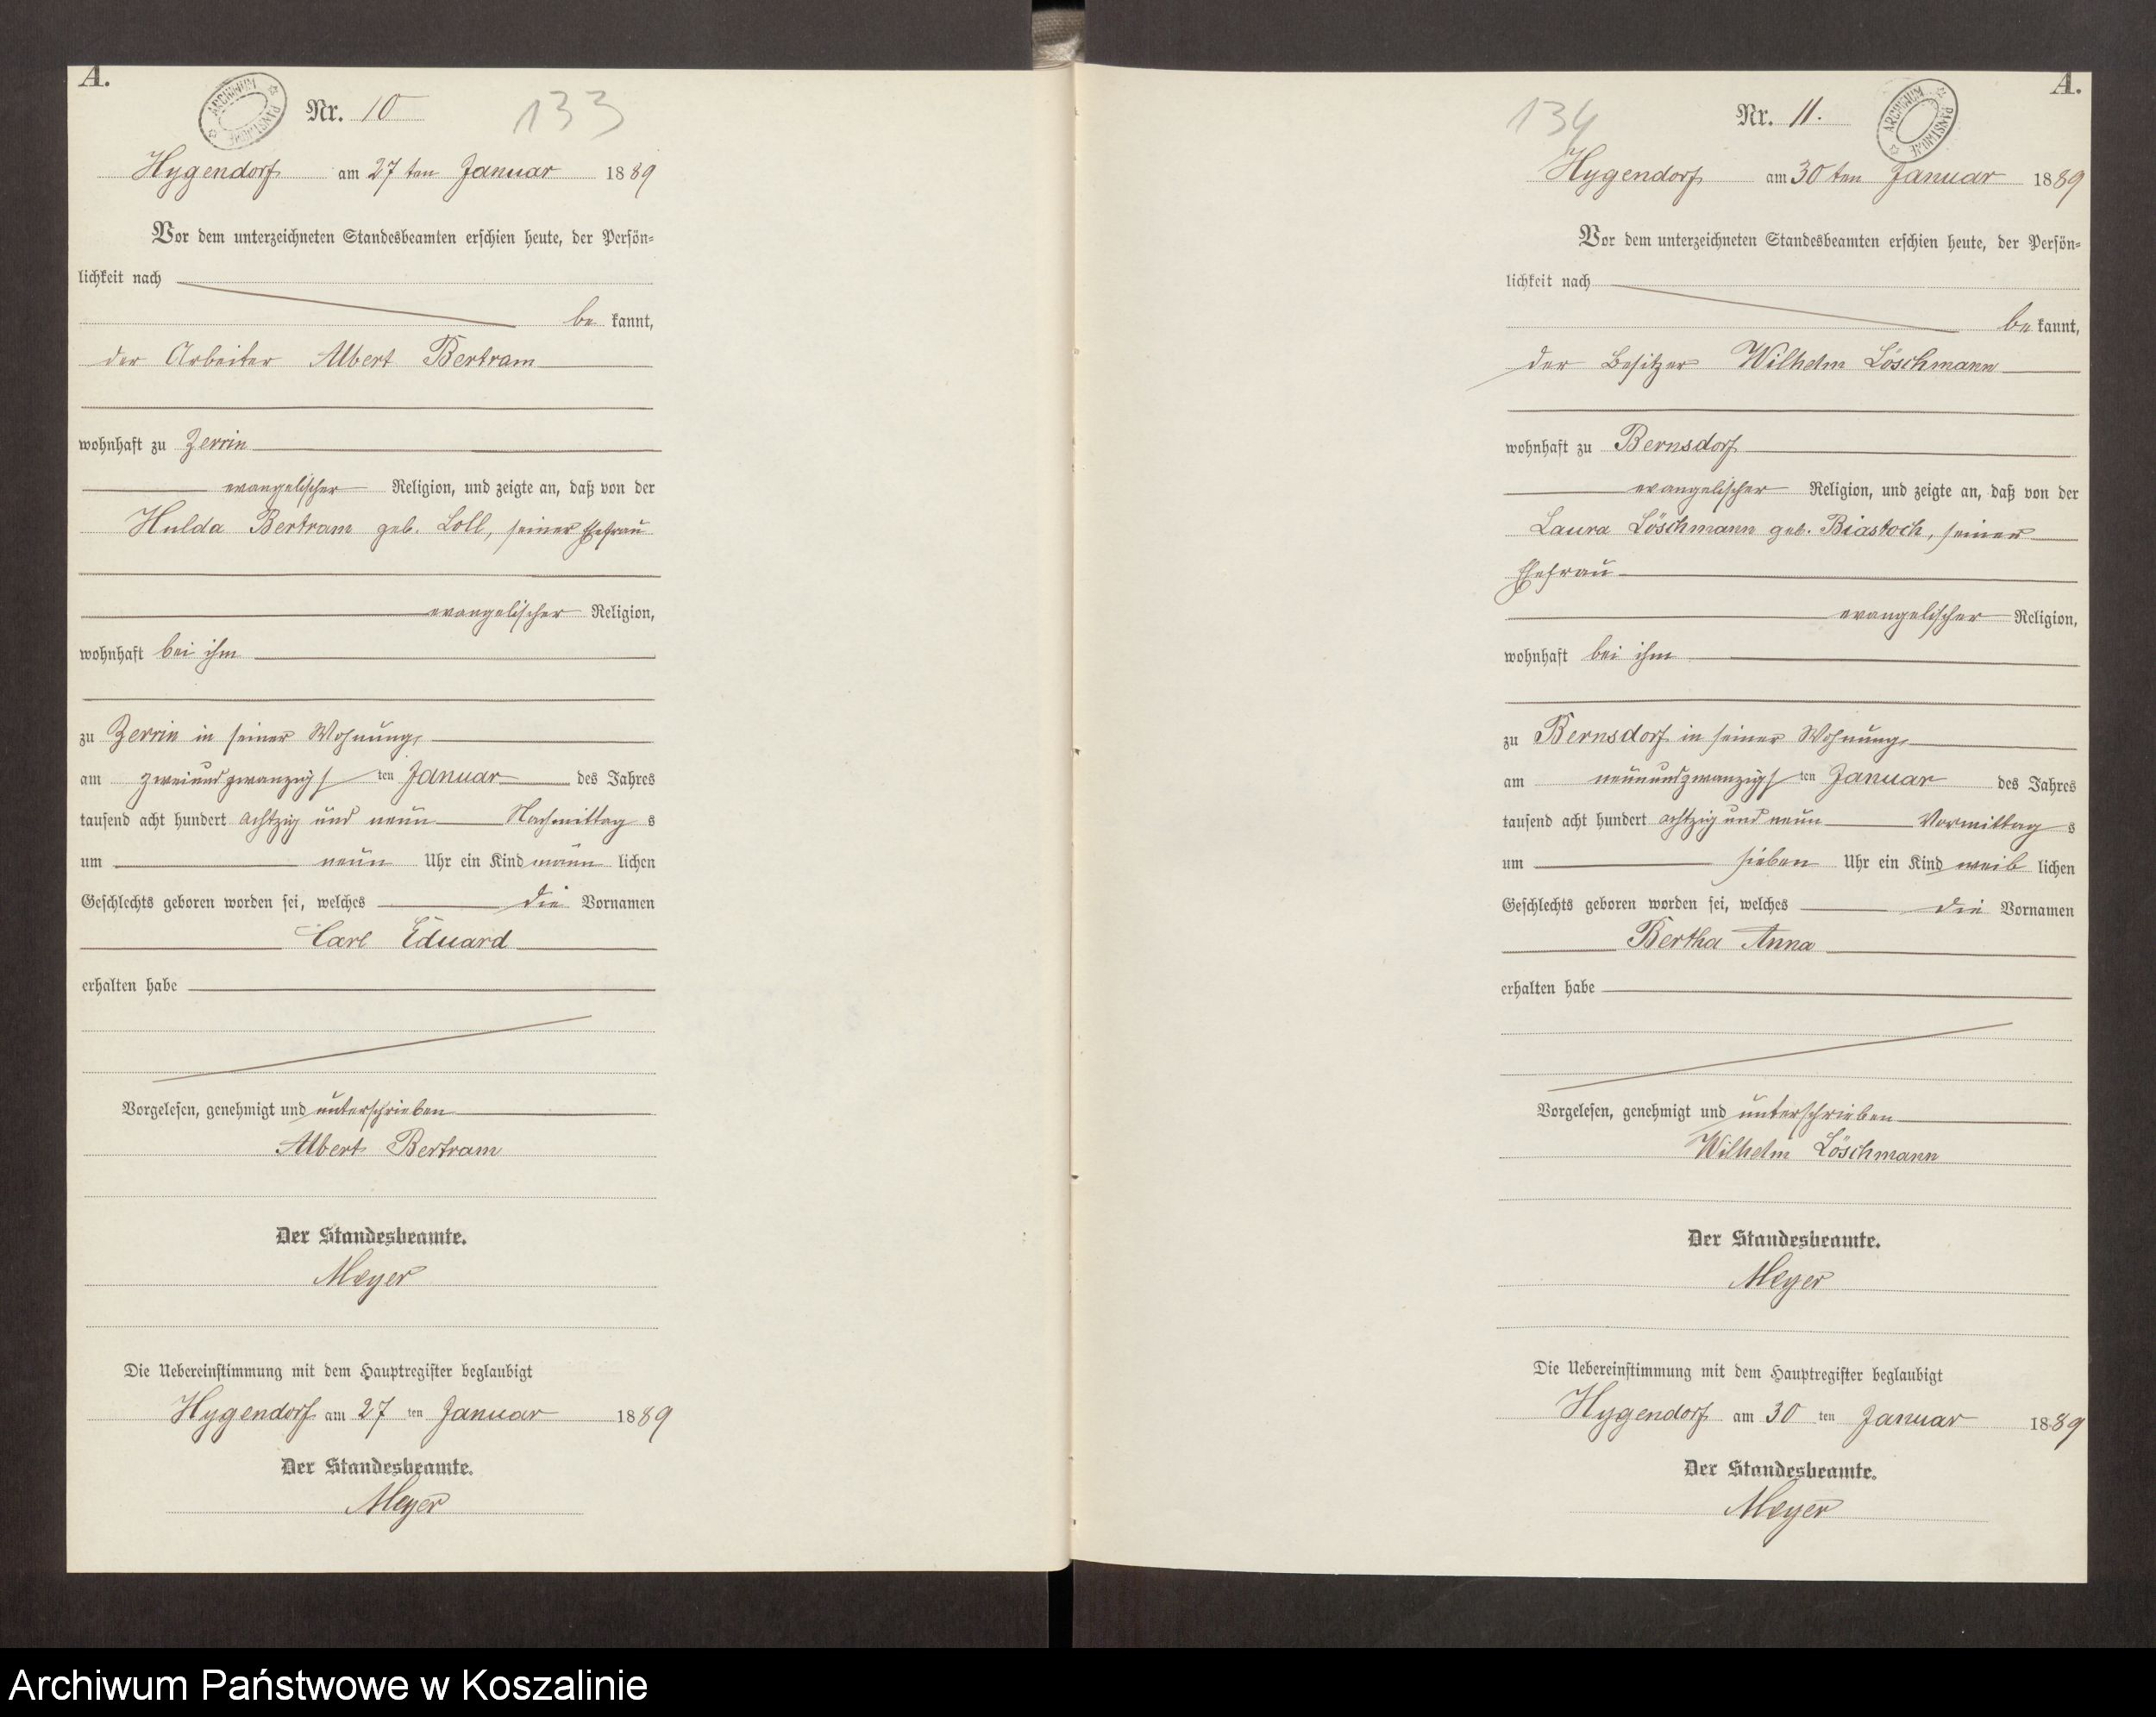 A.
ARCHIWUM PAŃSTWOWE
Nr. 10
133
Hygendorf am 27 ten Januar 1889
Vor dem unterzeichneten Standesbeamten erschien heute, der Persön=
lichkeit nach
be kannt,
der Arbeiter Albert Bertram
wohnhaft zu Zerrin
evangelischer Religion, und zeigte an, daß von der
Hulda Bertram geb. Loll, seiner Ehefrau
evangelischer Religion,
wohnhaft bei ihm
zu Zerrin in seiner Wohnung,
am zweiundzwanzigs ten Januar des Jahres
tausend acht hundert achtzig und neun Nachmittag s
um neun Uhr ein Kind männ lichen
Geschlechts geboren worden sei, welches die Vornamen
Carl Eduard
erhalten habe
Vorgelesen, genehmigt und unterschrieben
Albert Bertram
Der Standesbeamte.
Meyer
Die Uebereinstimmung mit dem Hauptregister beglaubigt
Hygendorf am 27 ten Januar 1889
Der Standesbeamte.
Meyer
A.
ARCHIWUM PAŃSTWOWE
134
Nr. 11.
Hygendorf am 30 ten Januar 1889
Vor dem unterzeichneten Standesbeamten erschien heute, der Persön=
lichkeit nach
be kannt,
der Besitzer Wilhelm Löschmann
wohnhaft zu Bernsdorf
evangelischer Religion, und zeigte an, daß von der
Laura Löschmann geb. Biastoch, seiner
Ehefrau
evangelischer Religion,
wohnhaft bei ihm
zu Bernsdorf in seiner Wohnung,
am neunundzwanzigs ten Januar des Jahres
tausend acht hundert achtzig und neun Vormittag s
um sieben Uhr ein Kind weib lichen
Geschlechts geboren worden sei, welches die Vornamen
Bertha Anna
erhalten habe
Vorgelesen, genehmigt und unterschrieben
Wilhelm Löschmann
Der Standesbeamte.
Meyer
Die Uebereinstimmung mit dem Hauptregister beglaubigt
Hygendorf am 30 ten Januar 1889
Der Standesbeamte.
Meyer
Archiwum Państwowe w Koszalinie